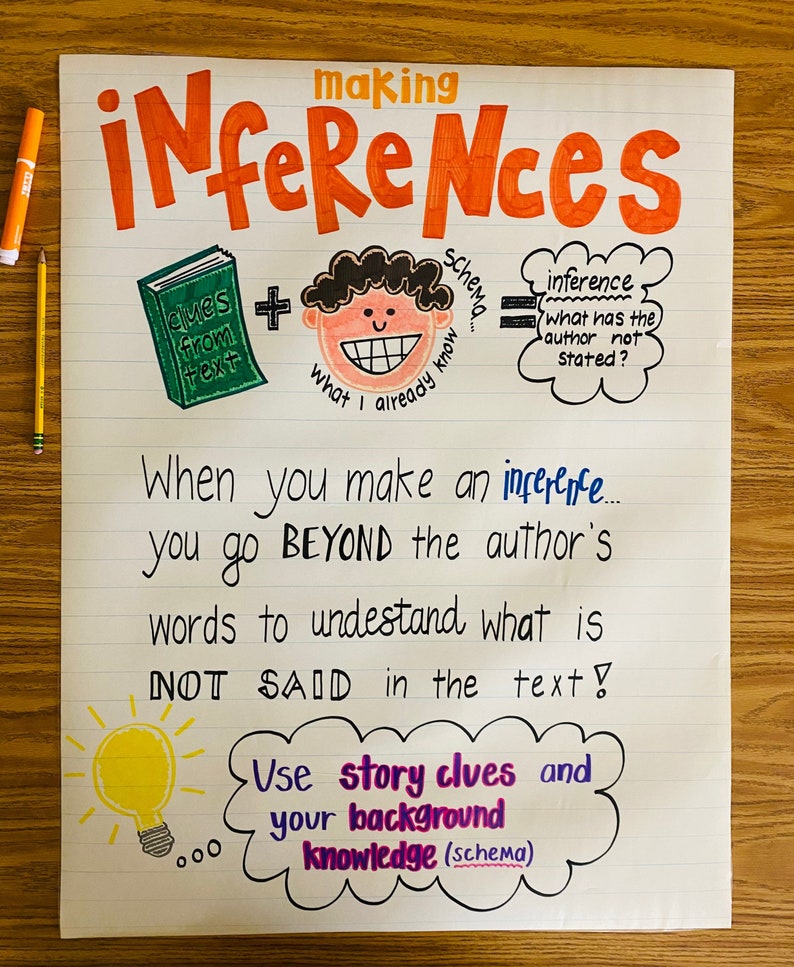 making
iNfeReNces
clues
from
text
+
schema...
what I already know
=
inference
what has the
author not
stated?
When you make an inference...
you go BEYOND the author's
words to undestand what is
NOT SAID in the text!
Use story clues and
your background
knowledge (schema)